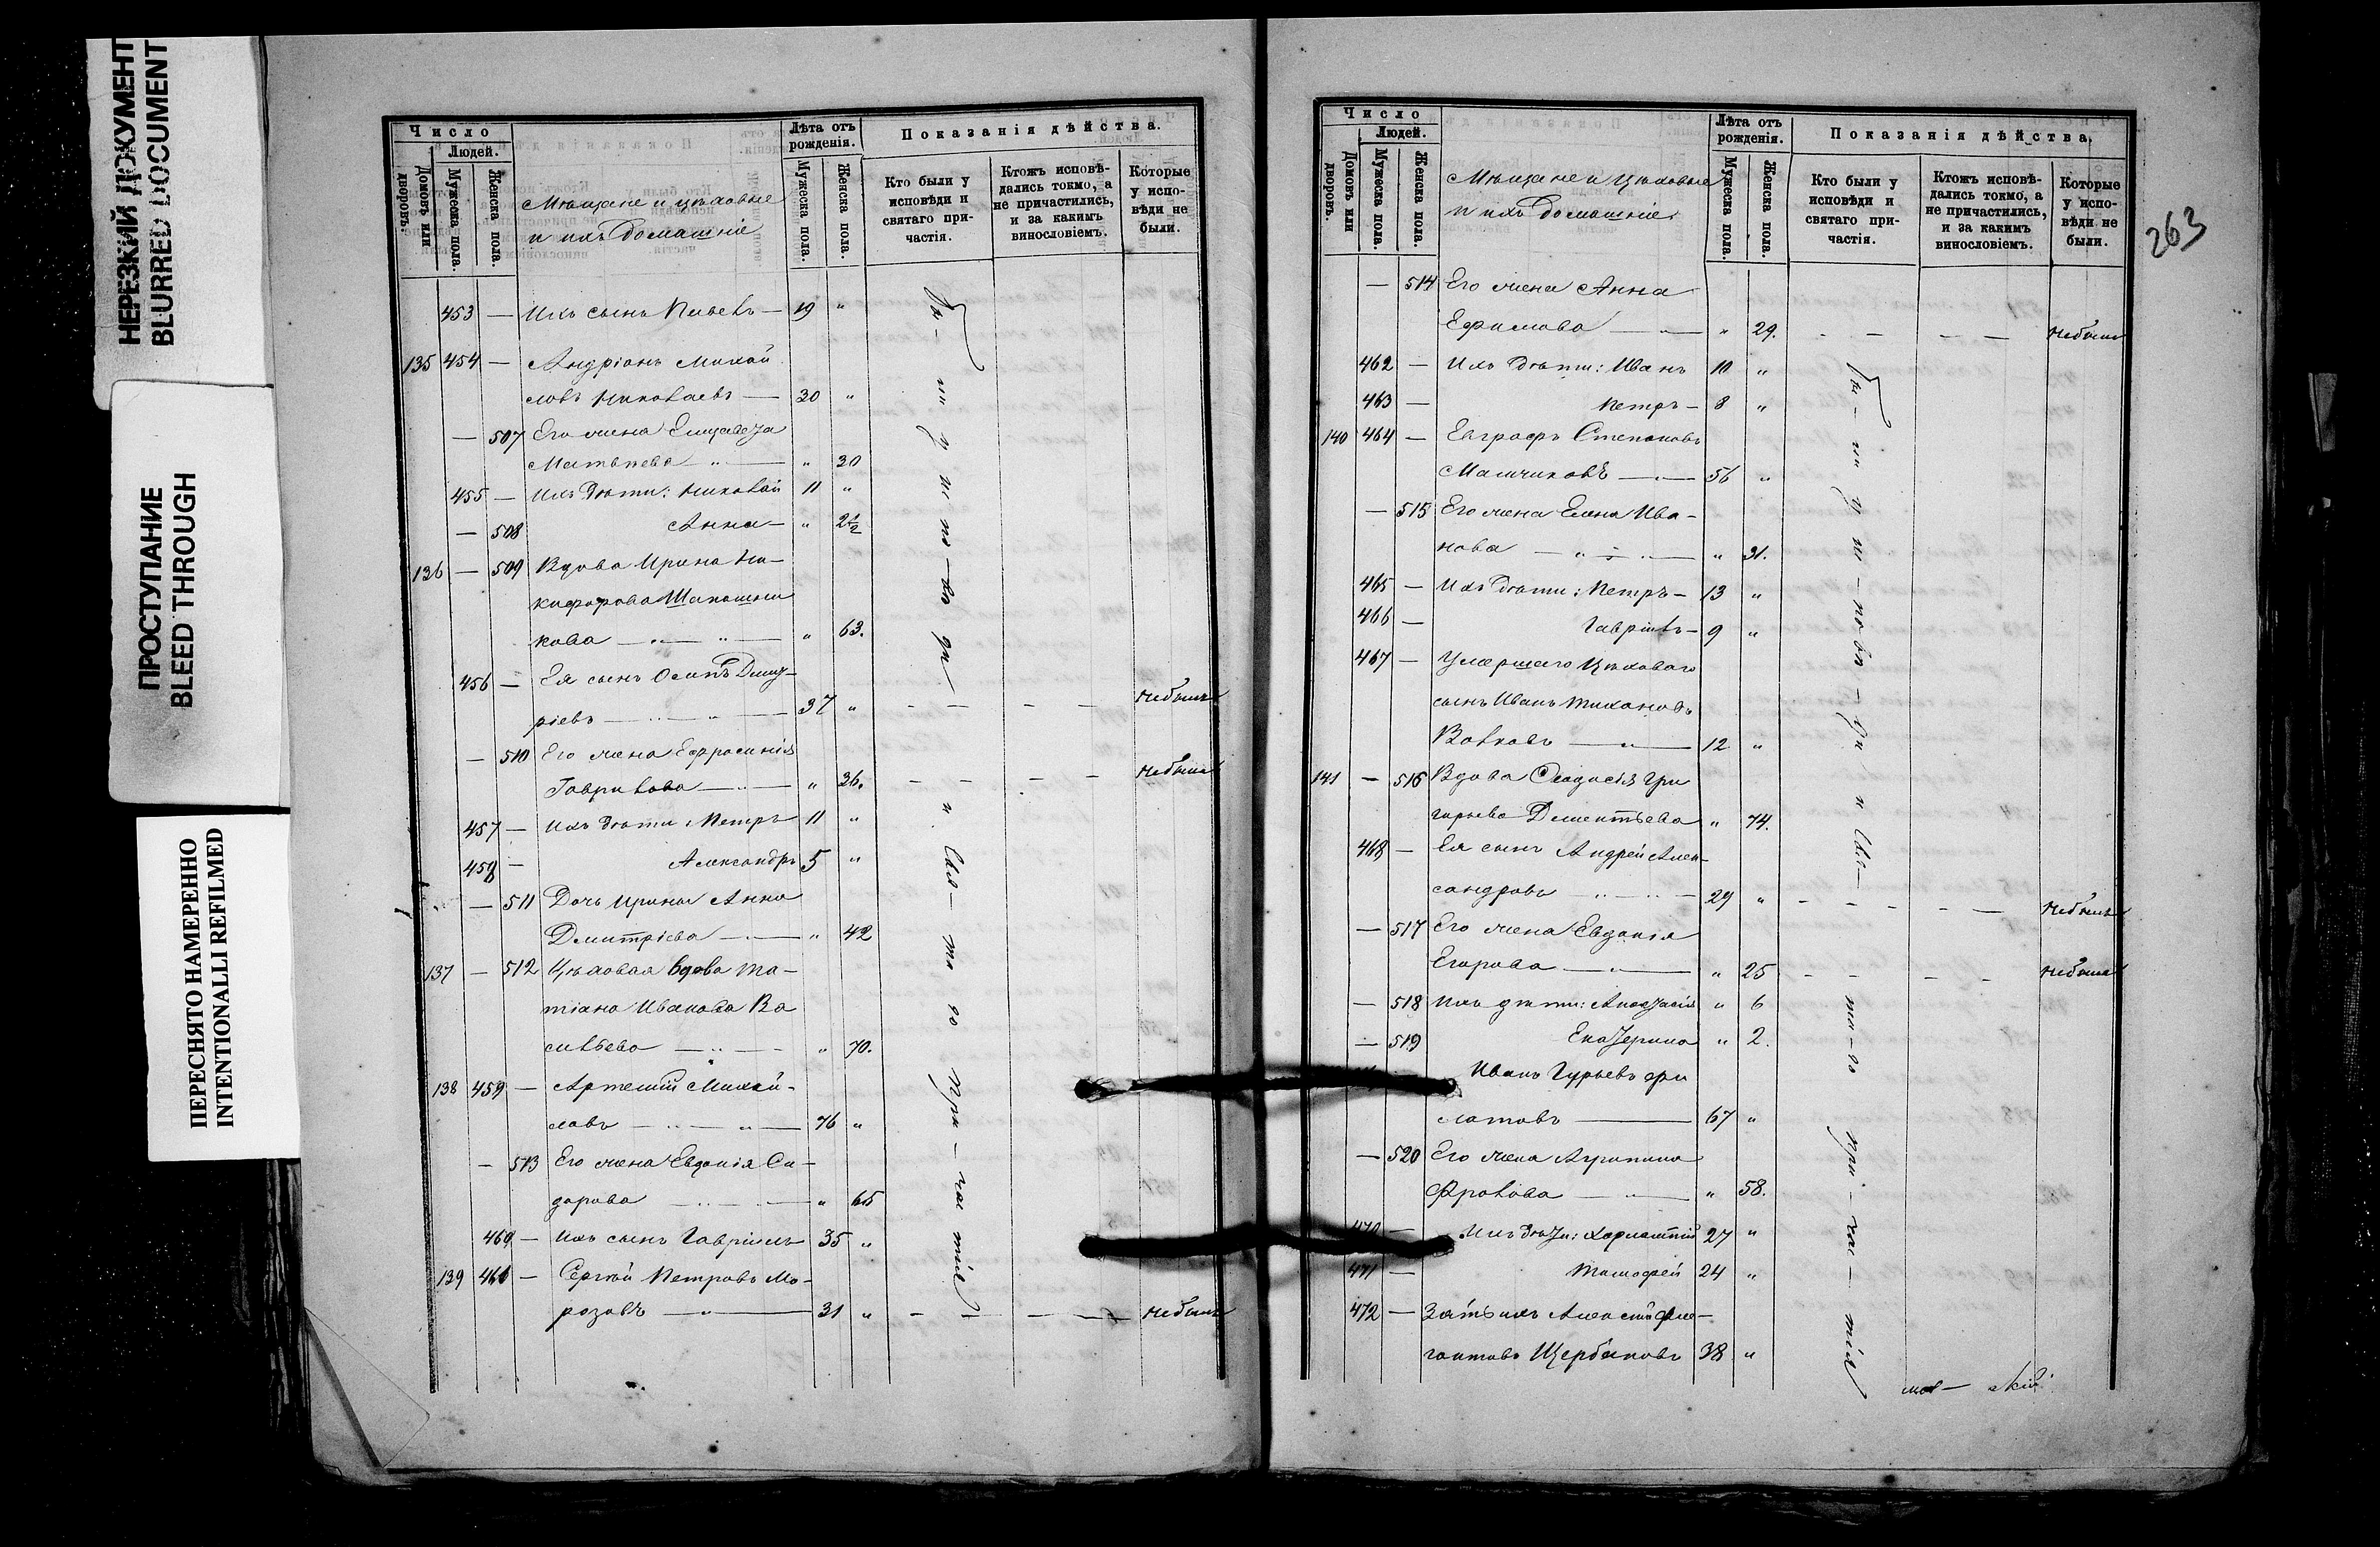 НЕРЕЗКИЙ ДОКУМЕНТ
BLURRED DOCUMENT
ПРОСТУПАНИЕ
BLEED THROUGH
ПЕРЕСНЯТО НАМЕРЕННО
INTENTIONALLI REFILMED
Число
Людей.
Домовъ или дворовъ.
Мужеска пола.
Женска пола.
Мѣщане и цѣховые
и ихъ домашніе
Лѣта отъ рожденія.
Мужеска пола.
Женска пола.
Показанія дѣйства.
Кто были у исповѣди и святаго причастія.
Ктожъ исповѣдались токмо, а не причастились, и за какимъ винословіемъ.
Которые у исповѣди не были.
453 — Ихъ сынъ 19 "
135 454 — Андріанъ Михай
ловъ Николаевъ — 30 "
— 507 Его жена Елизавета
Матвѣева — " — " 30
455 — Ихъ дѣти: Николай 11 "
— 508 Анна — " 2½
136 — 509 Вдова Ирина Ни-
кифорова Шапошни
кова — " — " 63.
456 — Ея сынъ Осипъ Дмит-
ріевъ — 37 " — — — — небылъ
— 510 Его жена Ефросинія
Гаврилова — " 36. — — — — небыла
457 — Ихъ дѣти: Петръ 11 "
458 — Александръ 5 "
— 511 Дочь Ирины Анна
Дмитріева — " 42
137 — 512 Цѣховая вдова Та-
тіана Иванова Ва
сильева — " 70.
138 459 — Артемій Михай-
ловъ — 76 "
— 513 Его жена Евдокія Си-
дорова — " 65
460 — Ихъ сынъ Гавріилъ 35 "
139 461 — Сергѣй Петровъ Мо-
розовъ — 31 " — — — небылъ
Бы-ли у испо-вѣди и свя-таго при-частія
Число
Людей.
Домовъ или дворовъ.
Мужеска пола.
Женска пола.
Мѣщане и цѣховые
и ихъ домашніе
Лѣта отъ рожденія.
Мужеска пола.
Женска пола.
Показанія дѣйства.
Кто были у исповѣди и святаго причастія.
Ктожъ исповѣдались токмо, а не причастились, и за какимъ винословіемъ.
Которые у исповѣди не были.
263
— 514 Его жена Анна
Ефимова — " 29. — — — — небыла
462 — Ихъ дѣти: Иванъ 10 "
463 — Петръ — 8 "
140 464 — Евграфъ Степановъ
56 "
— 515 Его жена Елена Ива-
нова — " 31.
465 — Ихъ дѣти: Петръ — 13 "
466 — Гавріилъ — 9 "
467 — Умершаго цѣховаго
сынъ Иванъ Тихоновъ
Волковъ — 12 "
141 — 516 Вдова Феодосія Гри
горьева Дементьева " 74.
468 — Ея сынъ Андрей Алек-
сандровъ — 29 " — — — — небылъ
— 517 Его жена Евдокія
Егорова — " 25 — — — — небыла
— 518 Ихъ дѣти: Анастасія " 6
— 519 Екатерина " 2.
Иванъ Гурьевъ Фи
латовъ — 67 "
— 520 Его жена Агрипина
Фролова — " 58.
470 — Ихъ дѣти: Харлампій 27 "
471 — Тимофей 24 "
472 — Зять ихъ Алексѣй Фле-
гонтовъ Щербаковъ 38 "
Бы-ли у ис-повѣ-ди и свя-та-го при-час-тія